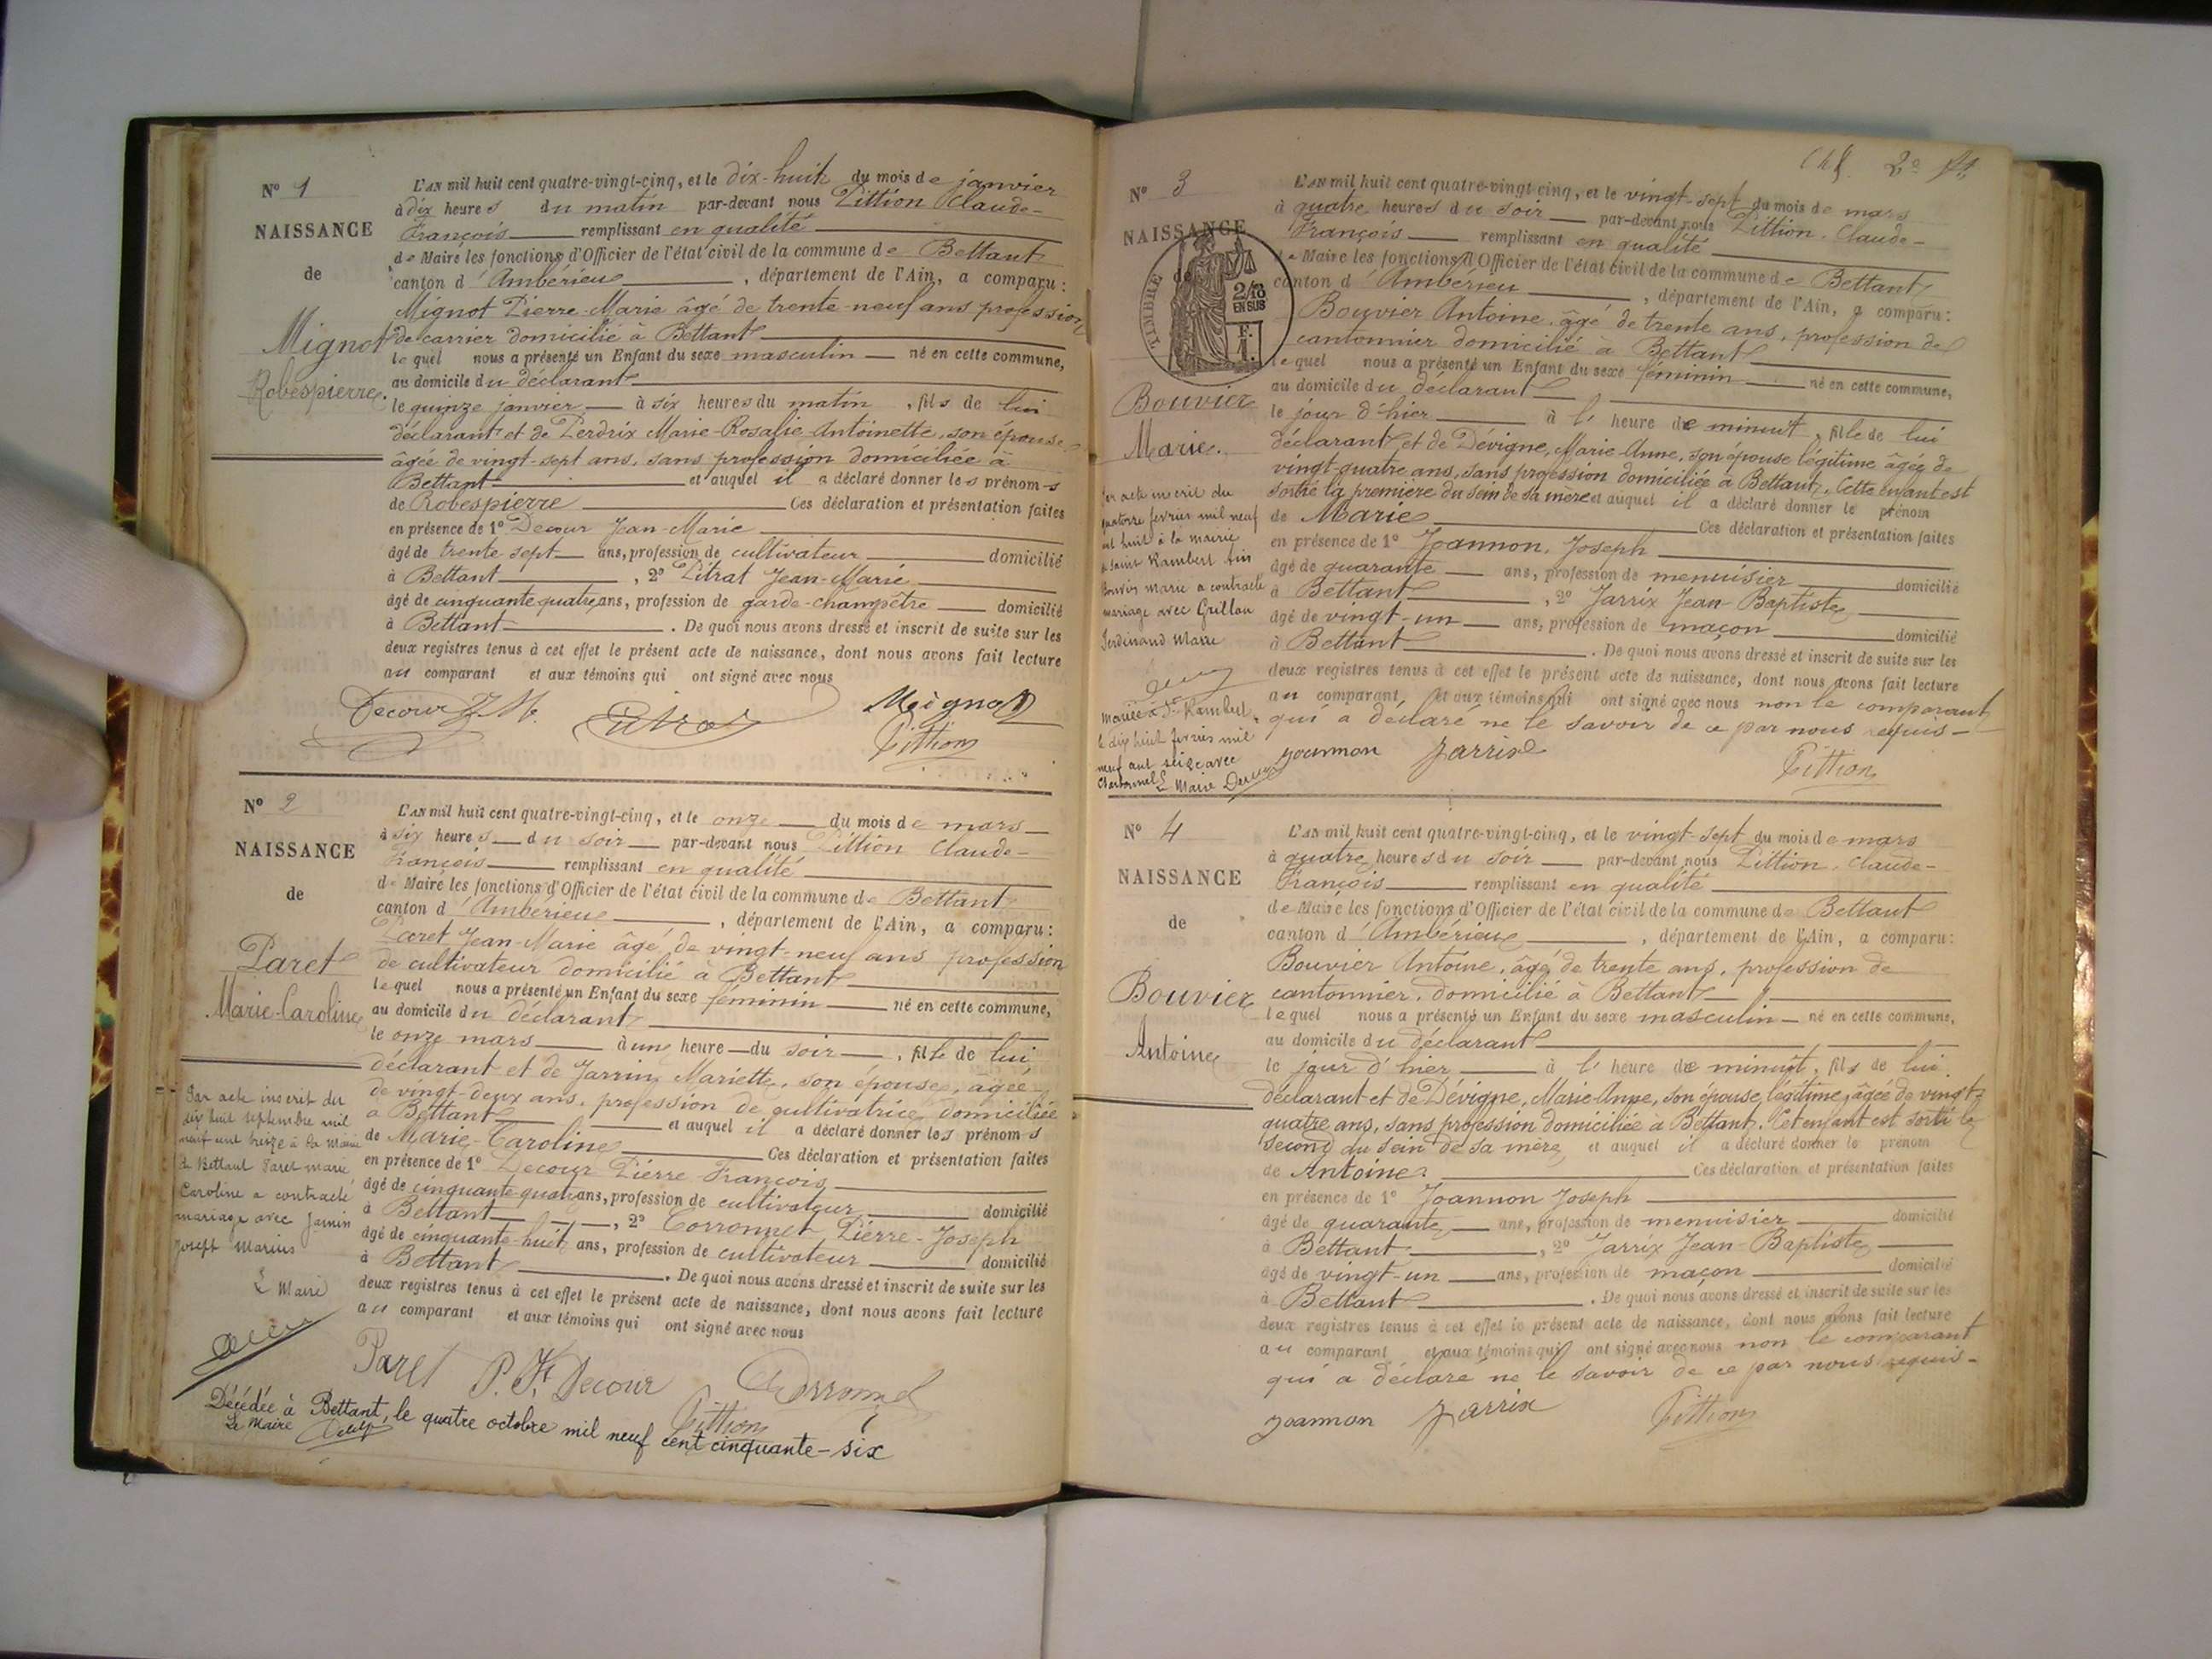 Nº 1
NAISSANCE
de
Mignot
Robespierre
L'AN mil huit cent quatre-vingt-cinq, et le dix-huit du mois de janvier
à dix heures du matin par-devant nous Pittion Claude-
François remplissant en qualité
de Maire les fonctions d'Officier de l'état civil de la commune de Bettant
canton d'Ambérieu, département de l'Ain, a comparu :
Mignot Pierre-Marie âgé de trente-neuf ans profession
de carrier domicilié à Bettant
lequel nous a présenté un Enfant du sexe masculin né en cette commune,
au domicile du déclarant
le quinze janvier à six heures du matin, fils de lui
déclarant et de Perdrix Marie-Rosalie-Antoinette, son épouse
âgée de vingt-sept ans, sans profession domiciliée à
Bettant et auquel il a déclaré donner les prénoms
de Robespierre Ces déclaration et présentation faites
en présence de 1º Decour Jean-Marie
âgé de trente sept ans, profession de cultivateur domicilié
à Bettant, 2º Pitrat Jean-Marie
âgé de cinquante quatre ans, profession de garde-champêtre domicilié
à Bettant. De quoi nous avons dressé et inscrit de suite sur les
deux registres tenus à cet effet le présent acte de naissance, dont nous avons fait lecture
au comparant et aux témoins qui ont signé avec nous
Decour J.M. Pitrat Mignot
Pittion
Nº 2
NAISSANCE
de
Paret
Marie-Caroline
L'AN mil huit cent quatre-vingt-cinq, et le onze du mois de mars
à six heures du soir par-devant nous Pittion Claude-
François remplissant en qualité
de Maire les fonctions d'Officier de l'état civil de la commune de Bettant
canton d'Ambérieu, département de l'Ain, a comparu :
Paret Jean-Marie âgé de vingt-neuf ans profession
de cultivateur domicilié à Bettant
lequel nous a présenté un Enfant du sexe féminin né en cette commune,
au domicile du déclarant
le onze mars à une heure du soir, fille de lui
déclarant et de Jarrin Mariette, son épouse, âgée
de vingt-deux ans, profession de cultivatrice domiciliée
à Bettant et auquel il a déclaré donner les prénoms
de Marie-Caroline Ces déclaration et présentation faites
en présence de 1º Decour Pierre François
âgé de cinquante-quatre ans, profession de cultivateur domicilié
à Bettant, 2º Corronnet Pierre-Joseph
âgé de cinquante-huit ans, profession de cultivateur domicilié
à Bettant. De quoi nous avons dressé et inscrit de suite sur les
deux registres tenus à cet effet le présent acte de naissance, dont nous avons fait lecture
au comparant et aux témoins qui ont signé avec nous
Par acte inscrit du
dix huit septembre mil
neuf cent treize à la Mairie
de Bettant Paret Marie
Caroline a contracté
mariage avec Jamin
Joseph Marius
L Maire
Paret P. F. Decour Corronnet
Pittion
Décédée à Bettant, le quatre octobre mil neuf cent cinquante-six
Le Maire
2e
Nº 3
NAISSANCE
de
TIMBRE
2/10
EN SUS
F.
1.
Bouvier
Marie.
L'AN mil huit cent quatre-vingt-cinq, et le vingt-sept du mois de mars
à quatre heures du soir par-devant nous Pittion, Claude-
François remplissant en qualité
de Maire les fonctions d'Officier de l'état civil de la commune de Bettant
canton d'Ambérieu, département de l'Ain, a comparu :
Bouvier Antoine, âgé de trente ans, profession de
cantonnier domicilié à Bettant
lequel nous a présenté un Enfant du sexe féminin né en cette commune,
au domicile du déclarant
le jour d'hier à l'heure de minuit, fille de lui
déclarant et de Dévigne, Marie-Anne, son épouse légitime âgée de
vingt-quatre ans, sans profession domiciliée à Bettant. Cette enfant est
sortie la première du sein de sa mère et auquel il a déclaré donner le prénom
de Marie Ces déclaration et présentation faites
en présence de 1º Joannon, Joseph
âgé de quarante ans, profession de menuisier domicilié
à Bettant, 2º Jarrix Jean-Baptiste
âgé de vingt-un ans, profession de maçon domicilié
à Bettant. De quoi nous avons dressé et inscrit de suite sur les
deux registres tenus à cet effet le présent acte de naissance, dont nous avons fait lecture
au comparant, et aux témoins qui ont signé avec nous non le comparant
qui a déclaré ne le savoir de ce par nous requis-
Joannon Jarrix Pittion
Par acte inscrit du
quatorze fevrier mil neuf
cent huit à la mairie
de Saint Rambert Ain
Bouvier Marie a contracté
mariage avec Grillon
Ferdinand Maire
Mariée à St Rambert
le dix huit fevrier mil
neuf cent seize avec
Charbonnel L Maire
Nº 4
NAISSANCE
de
Bouvier
Antoine
L'AN mil huit cent quatre-vingt-cinq, et le vingt-sept du mois de mars
à quatre heures du soir par-devant nous Pittion, Claude-
François remplissant en qualité
de Maire les fonctions d'Officier de l'état civil de la commune de Bettant
canton d'Ambérieu, département de l'Ain, a comparu :
Bouvier Antoine, âgé de trente ans, profession de
cantonnier, domicilié à Bettant
lequel nous a présenté un Enfant du sexe masculin né en cette commune,
au domicile du déclarant
le jour d'hier à l'heure de minuit, fils de lui
déclarant et de Dévigne, Marie-Anne, son épouse légitime, âgée de vingt-
quatre ans, sans profession domiciliée à Bettant. Cet enfant est sorti le
second du sein de sa mère, et auquel il a déclaré donner le prénom
de Antoine. Ces déclaration et présentation faites
en présence de 1º Joannon Joseph
âgé de quarante ans, profession de menuisier domicilié
à Bettant, 2º Jarrix Jean-Baptiste
âgé de vingt-un ans, profession de maçon domicilié
à Bettant. De quoi nous avons dressé et inscrit de suite sur les
deux registres tenus à cet effet le présent acte de naissance, dont nous avons fait lecture
au comparant et aux témoins qui ont signé avec nous non le comparant
qui a déclaré ne le savoir de ce par nous requis-
Joannon Jarrix Pittion